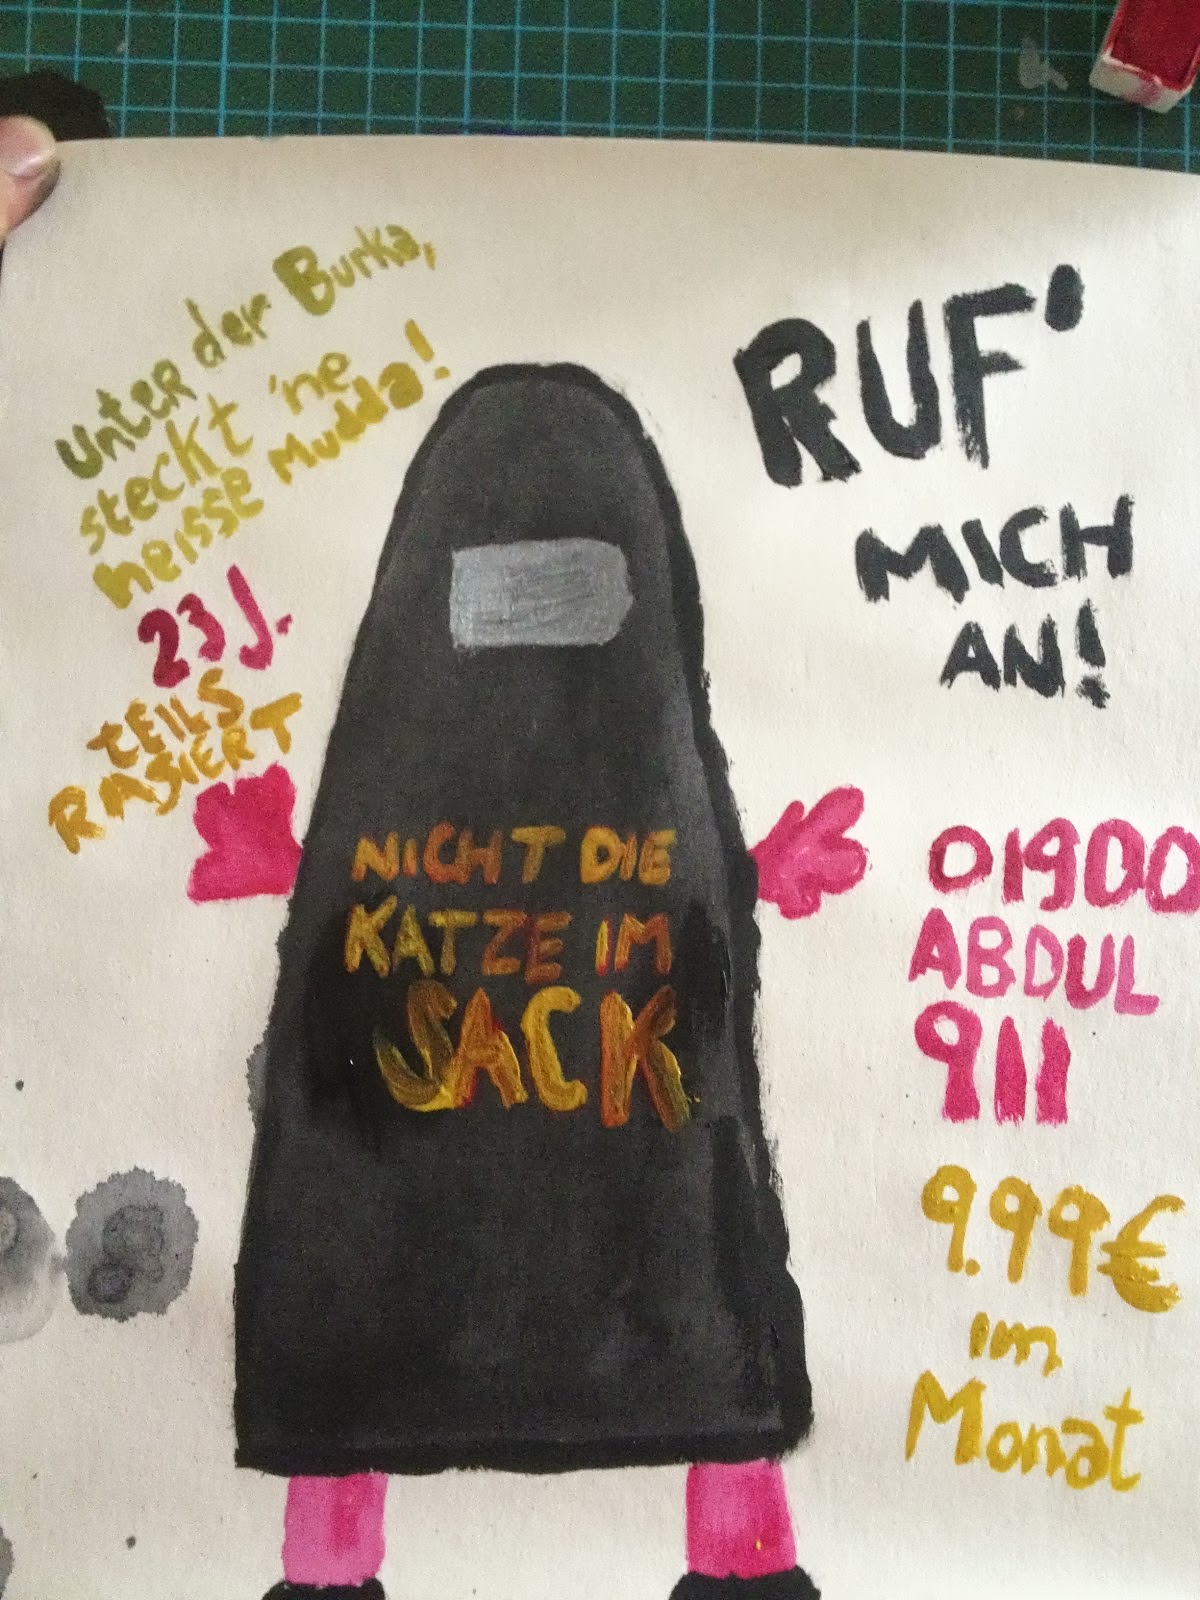 Unter der Burka,
steckt 'ne
heisse Mudda!
23 J.
tEILS
RASIERT
RUF'
MICH
AN!
NICHT DIE
KATZE IM
SACK
01900
ABDUL
911
9.99€
im
Monat